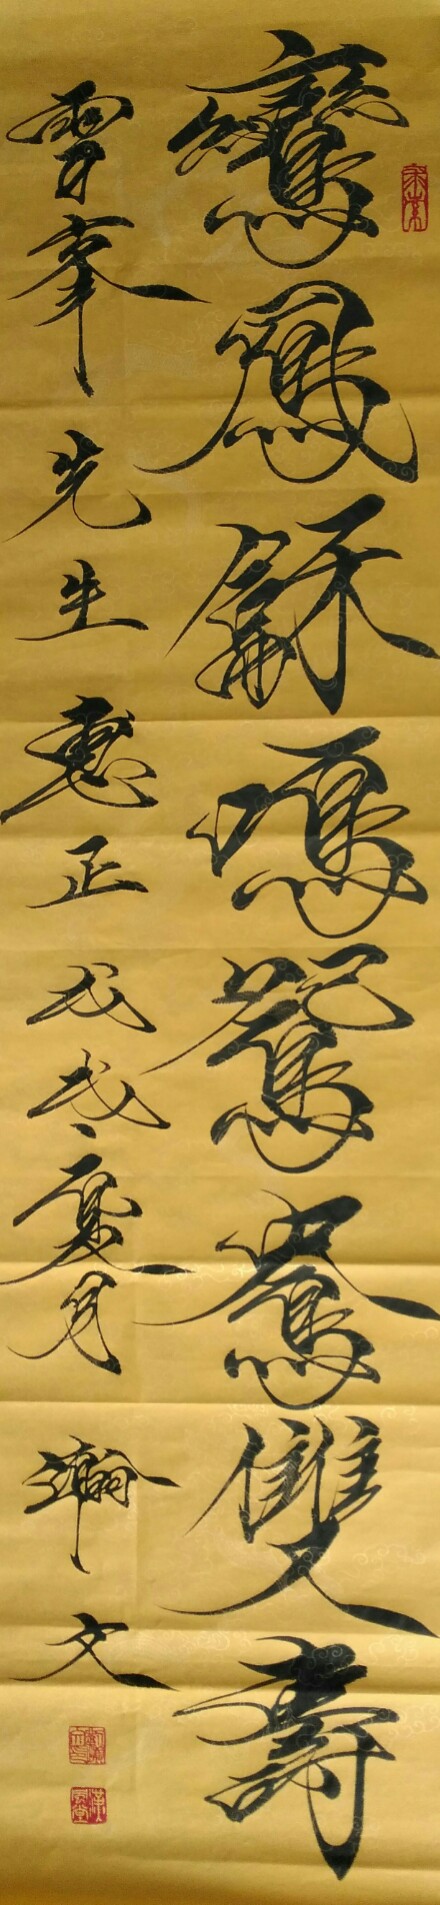 鸞鳳龢鳴鴛鴦雙壽
雪峯先生惠正戊戌夏月瀚文